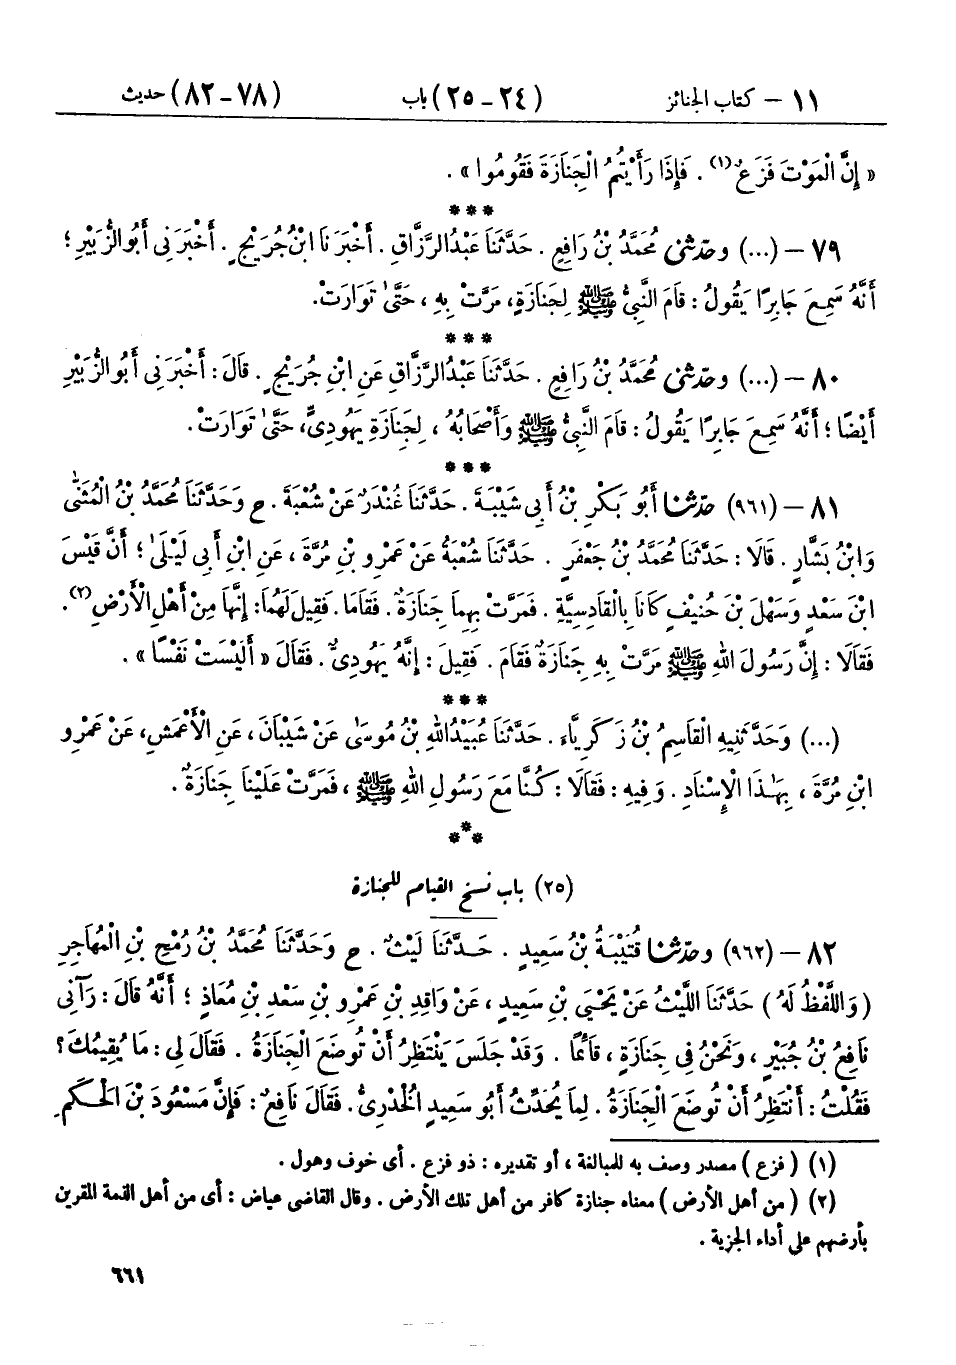 ١١ – كتاب الجنائز (٢٤ - ٢٥) باب (٧٨ - ٨٢) حديث
« إِنَّ الْمَوْتَ فَزَعٌ (١) . فَإِذَا رَأَيْتُمُ الْجَنَازَةَ فَقُومُوا » .
***
٧٩ – (...) وحدّثنى مُحَمَّدُ بْنُ رَافِعٍ . حَدَّثَنَا عَبْدُ الرَّزَّاقِ . أَخْبَرَنَا ابْنُ جُرَيْجٍ . أَخْبَرَنِى أَبُو الزُّبَيْرِ ؛
أَنَّهُ سَمِعَ جَابِرًا يَقُولُ : قَامَ النَّبِىُّ ﷺ لِجَنَازَةٍ، مَرَّتْ بِهِ ، حَتَّىٰ تَوَارَتْ.
***
٨٠ – (...) وحدّثنى مُحَمَّدُ بْنُ رَافِعٍ . حَدَّثَنَا عَبْدُ الرَّزَّاقِ عَنِ ابْنِ جُرَيْجٍ . قَالَ : أَخْبَرَنِى أَبُو الزُّبَيْرِ
أَيْضًا ؛ أَنَّهُ سَمِعَ جَابِرًا يَقُولُ : قَامَ النَّبِىُّ ﷺ وَأَصْحَابُهُ ، لِجَنَازَةِ يَهُودِىٍّ، حَتَّىٰ تَوَارَتْ.
***
٨١ – (٩٦١) حدّثنا أَبُو بَكْرِ بْنُ أَبِى شَيْبَةَ . حَدَّثَنَا غُنْدَرٌ عَنْ شُعْبَةَ . ح وَحَدَّثَنَا مُحَمَّدُ بْنُ الْمُثَنَّىٰ
وَابْنُ بَشَّارٍ . قَالَا : حَدَّثَنَا مُحَمَّدُ بْنُ جَعْفَرٍ . حَدَّثَنَا شُعْبَةُ عَنْ عَمْرِو بْنِ مُرَّةَ ، عَنِ ابْنِ أَبِى لَيْلَىٰ ؛ أَنَّ قَيْسَ
ابْنَ سَعْدٍ وَسَهْلَ بْنَ حُنَيْفٍ كَانَا بِالْقَادِسِيَّةِ . فَمَرَّتْ بِهِمَا جَنَازَةٌ . فَقَامَا. فَقِيلَ لَهُمَا : إِنَّهَا مِنْ أَهْلِ الْأَرْضِ (٢) .
فَقَالَا : إِنَّ رَسُولَ اللهِ ﷺ مَرَّتْ بِهِ جَنَازَةٌ فَقَامَ . فَقِيلَ : إِنَّهُ يَهُودِىٌّ . فَقَالَ « أَلَيْسَتْ نَفْسًا » .
***
(...) وَحَدَّثَنِيهِ الْقَاسِمُ بْنُ زَكَرِيَّاءَ . حَدَّثَنَا عُبَيْدُ اللهِ بْنُ مُوسَىٰ عَنْ شَيْبَانَ ، عَنِ الْأَعْمَشِ، عَنْ عَمْرِو
ابْنِ مُرَّةَ ، بِهَـٰذَا الْإِسْنَادِ . وَفِيهِ : فَقَالَا : كُنَّا مَعَ رَسُولِ اللهِ ﷺ ، فَمَرَّتْ عَلَيْنَا جَنَازَةٌ .
***
(٢٥) باب نسخ القيام للجنازة
٨٢ – (٩٦٢) وحدّثنا قُتَيْبَةُ بْنُ سَعِيدٍ . حَدَّثَنَا لَيْثٌ . ح وَحَدَّثَنَا مُحَمَّدُ بْنُ رُمْحِ بْنِ الْمُهَاجِرِ
( وَاللَّفْظُ لَهُ ) حَدَّثَنَا اللَّيْثُ عَنْ يَحْيَىٰ بْنِ سَعِيدٍ ، عَنْ وَاقِدِ بْنِ عَمْرِو بْنِ سَعْدِ بْنِ مُعَاذٍ ؛ أَنَّهُ قَالَ : رَآنِى
نَافِعُ بْنُ جُبَيْرٍ ، وَنَحْنُ فِى جَنَازَةٍ ، قَائِمًا . وَقَدْ جَلَسَ يَنْتَظِرُ أَنْ تُوضَعَ الْجَنَازَةُ . فَقَالَ لِى : مَا يُقِيمُكَ ؟
فَقُلْتُ : أَنْتَظِرُ أَنْ تُوضَعَ الْجَنَازَةُ . لِمَا يُحَدِّثُ أَبُو سَعِيدٍ الْخُدْرِىُّ . فَقَالَ نَافِعٌ : فَإِنَّ مَسْعُودَ بْنَ الْحَكَمِ
(١) ( فزع ) مصدر وصف به للمبالغة ، أو تقديره : ذو فزع . أى خوف وهول .
(٢) ( من أهل الأرض ) معناه جنازة كافر من أهل تلك الأرض . وقال القاضى عياض : أى من أهل الذمة المقرين
بأرضهم على أداء الجزية .
٦٦١